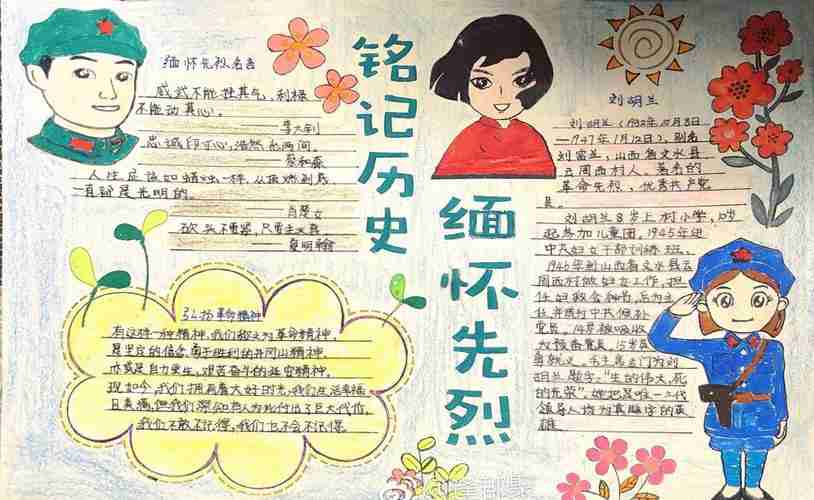 铭记历史
缅怀先烈
缅怀先烈名言
威武不能挫其气,利禄
不能动其心。
——李大钊
忠诚印寸心,浩然充两间。
——蔡和森
人生应该如蜡烛一样,从顶燃到底
一直都是光明的。
——肖楚女
砍头不要紧,只要主义真。
——夏明翰
弘扬革命精神
有这样一种精神,我们敬之为革命精神,
是坚定的信念,勇于胜利的井冈山精神,
亦或是自力更生、艰苦奋斗的延安精神,
现如今,我们拥有着大好时光,我们生活幸福
且美满,但我们深知先人为此付出了巨大代价,
我们不敢不记得,我们也不会不记得。
刘胡兰
刘胡兰(1932年10月8日
—1947年1月12日),别名
刘富兰,山西省文水县
云周西村人,著名的
革命先烈,优秀共产党
员。
刘胡兰8岁上村小学,10岁
起参加儿童团,1945年进
中共妇女干部训练班,
1946年到山西省文水县云
周西村做妇女工作,担
任妇救会秘书,后为主
任,并成为中共候补
党员。14岁被吸收
为预备党员。15岁英
勇就义。毛主席专门为刘
胡兰题字:“生的伟大,死
的光荣”。她也是唯一三代
领导人均为其题字的英
雄